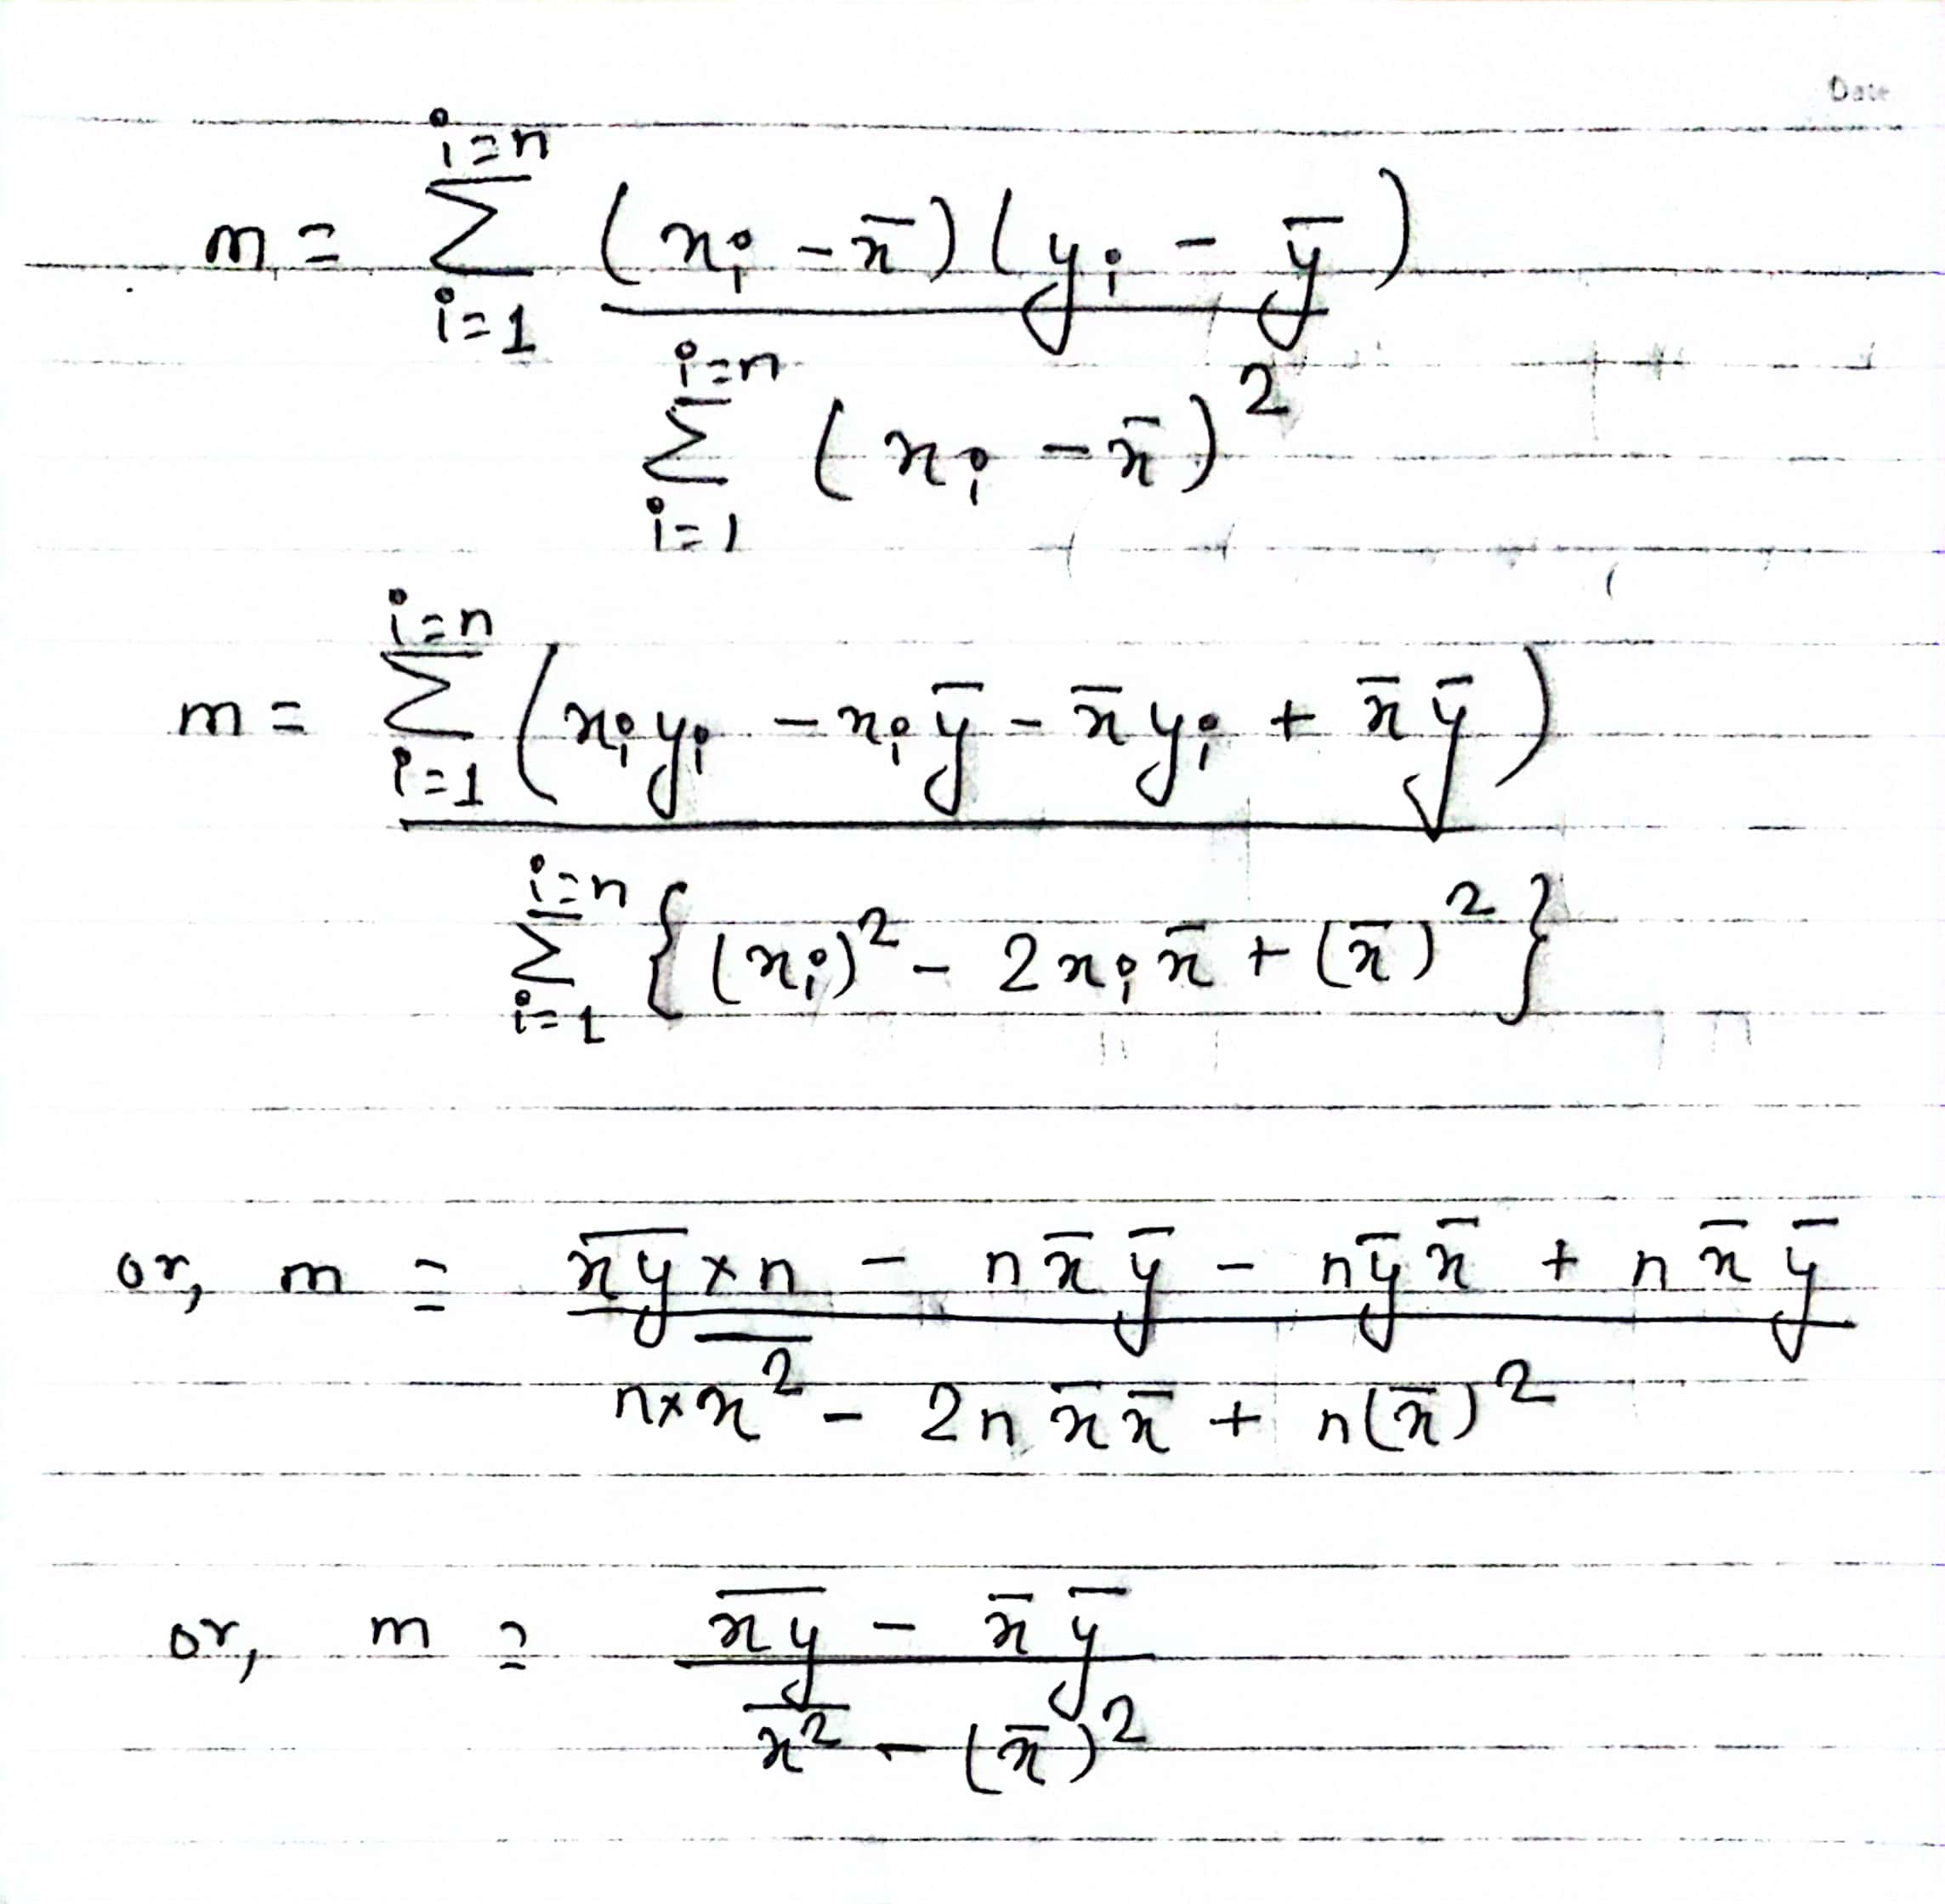 Date
m = \sum_{i=1}^{i=n} \frac{(x_i - \bar{x})(y_i - \bar{y})}{\sum_{i=1}^{i=n} (x_i - \bar{x})^2}
m = \frac{\sum_{i=1}^{i=n} (x_i y_i - x_i \bar{y} - \bar{x} y_i + \bar{x} \bar{y})}{\sum_{i=1}^{i=n} \{(x_i)^2 - 2 x_i \bar{x} + (\bar{x})^2\}}
or, m = \frac{\overline{xy} \times n - n \bar{x} \bar{y} - n \bar{y} \bar{x} + n \bar{x} \bar{y}}{n \times \overline{x^2} - 2n \bar{x} \bar{x} + n(\bar{x})^2}
or, m = \frac{\overline{xy} - \bar{x} \bar{y}}{\overline{x^2} - (\bar{x})^2}